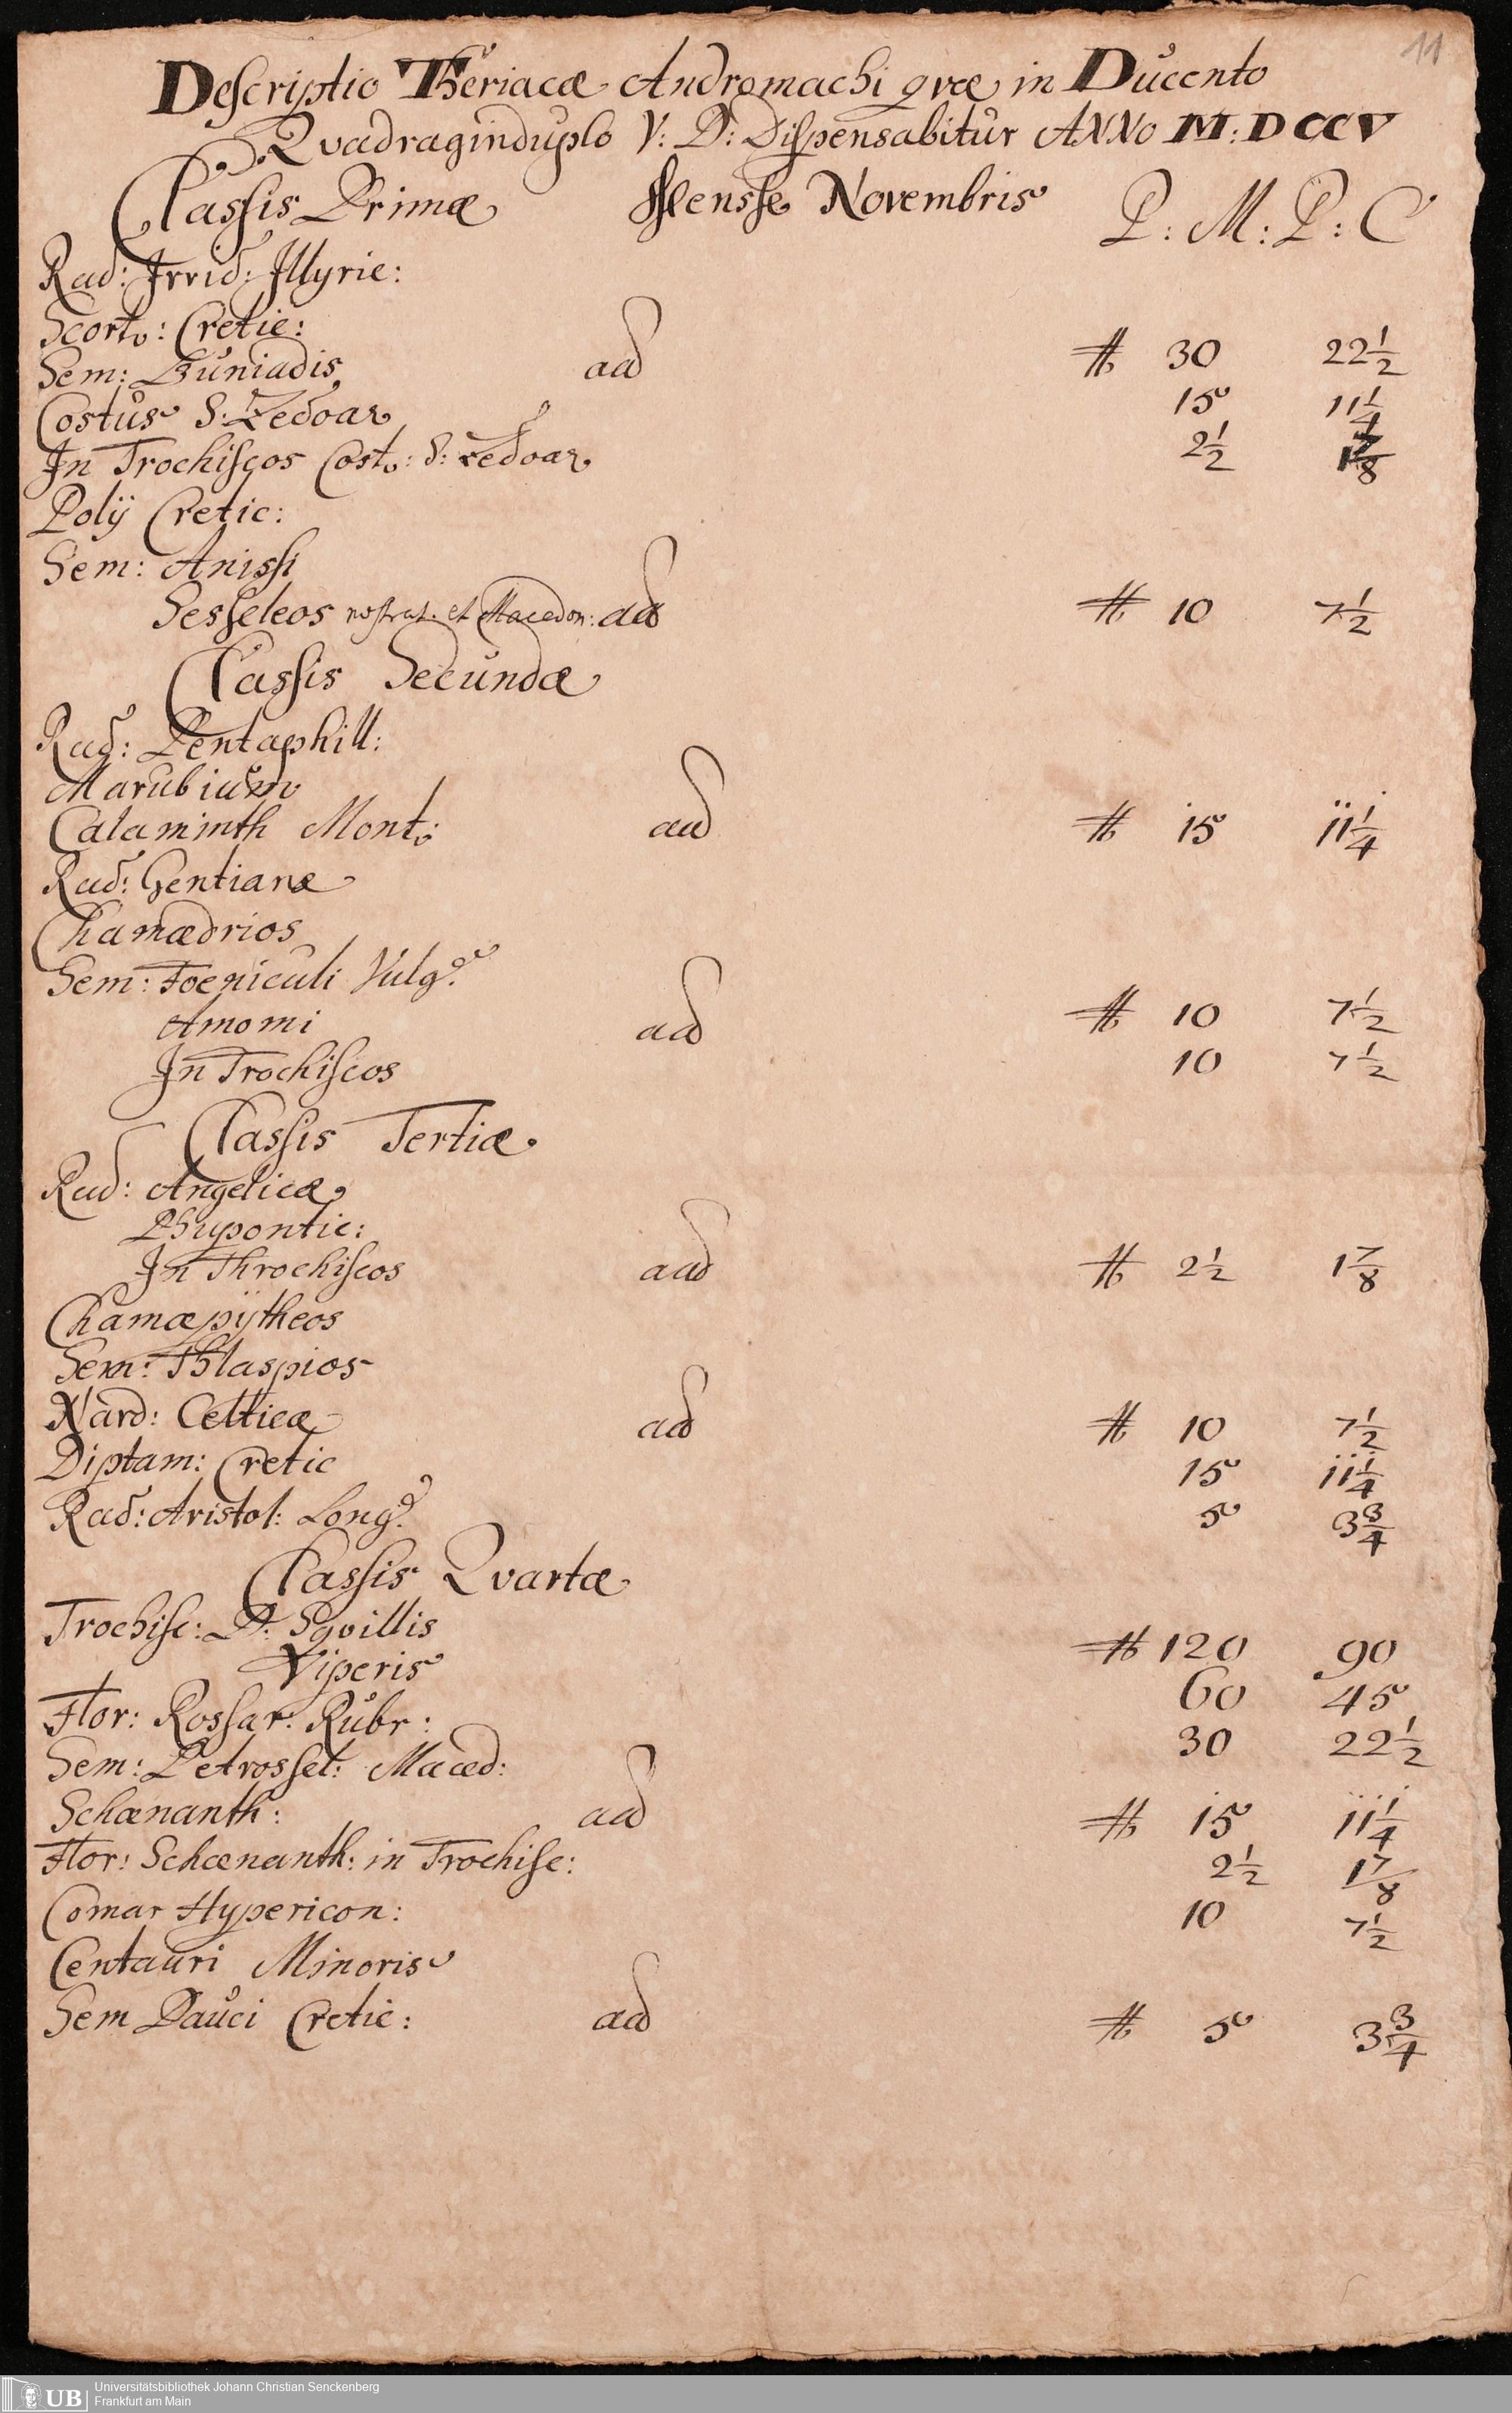 11
Descriptio Theriacæ Andromachi qvæ in Ducento
Qvadraginduplo V: D: Dispensabitur ANNO M: DCCV
Classis Primæ Mensse Novembris P: M: P: C
Rad: Irrid: Illyric:
Scort: Cretic:
Sem: Buniadis aa ℔ 30 22 1/2
Costus S. Zedoar 15 11 1/4
In Trochiscos Cost: S: Zedoar 2 1/2 1 7/8
Polij Cretic:
Sem: Anissi
Sesseleos nostrat. et Macedon: aa ℔ 10 7 1/2
Classis Secundæ
Rad: Pentaphill:
Marubium
Calaminth Mont: aa ℔ 15 11 1/4
Rad: Gentianæ
Chamædrios
Sem: Foeniculi Vulg:
Amomi aa ℔ 10 7 1/2
In Trochiscos 10 7 1/2
Classis Tertiæ
Rad: Angelicæ
Rhypontic:
In Throchiscos aa ℔ 2 1/2 1 7/8
Chamæpÿtheos
Sem: Thlaspios
Nard: Celticæ aa ℔ 10 7 1/2
Diptam: Cretic 15 11 1/4
Rad: Aristol: Long: 5 3 3/4
Classis Qvartæ
Trochisc: D: Sqvillis ℔ 120 90
Viperis 60 45
Flor: Rossar: Rubr: 30 22 1/2
Sem: Petrossel: Maced:
Schœnanth: aa ℔ 15 11 1/4
Flor: Schœnanth: in Trochisc: 2 1/2 1 7/8
Comar Hypericon: 10 7 1/2
Centauri Minoris
Sem Dauci Cretic: aa ℔ 5 3 3/4
UB
Universitätsbibliothek Johann Christian Senckenberg
Frankfurt am Main